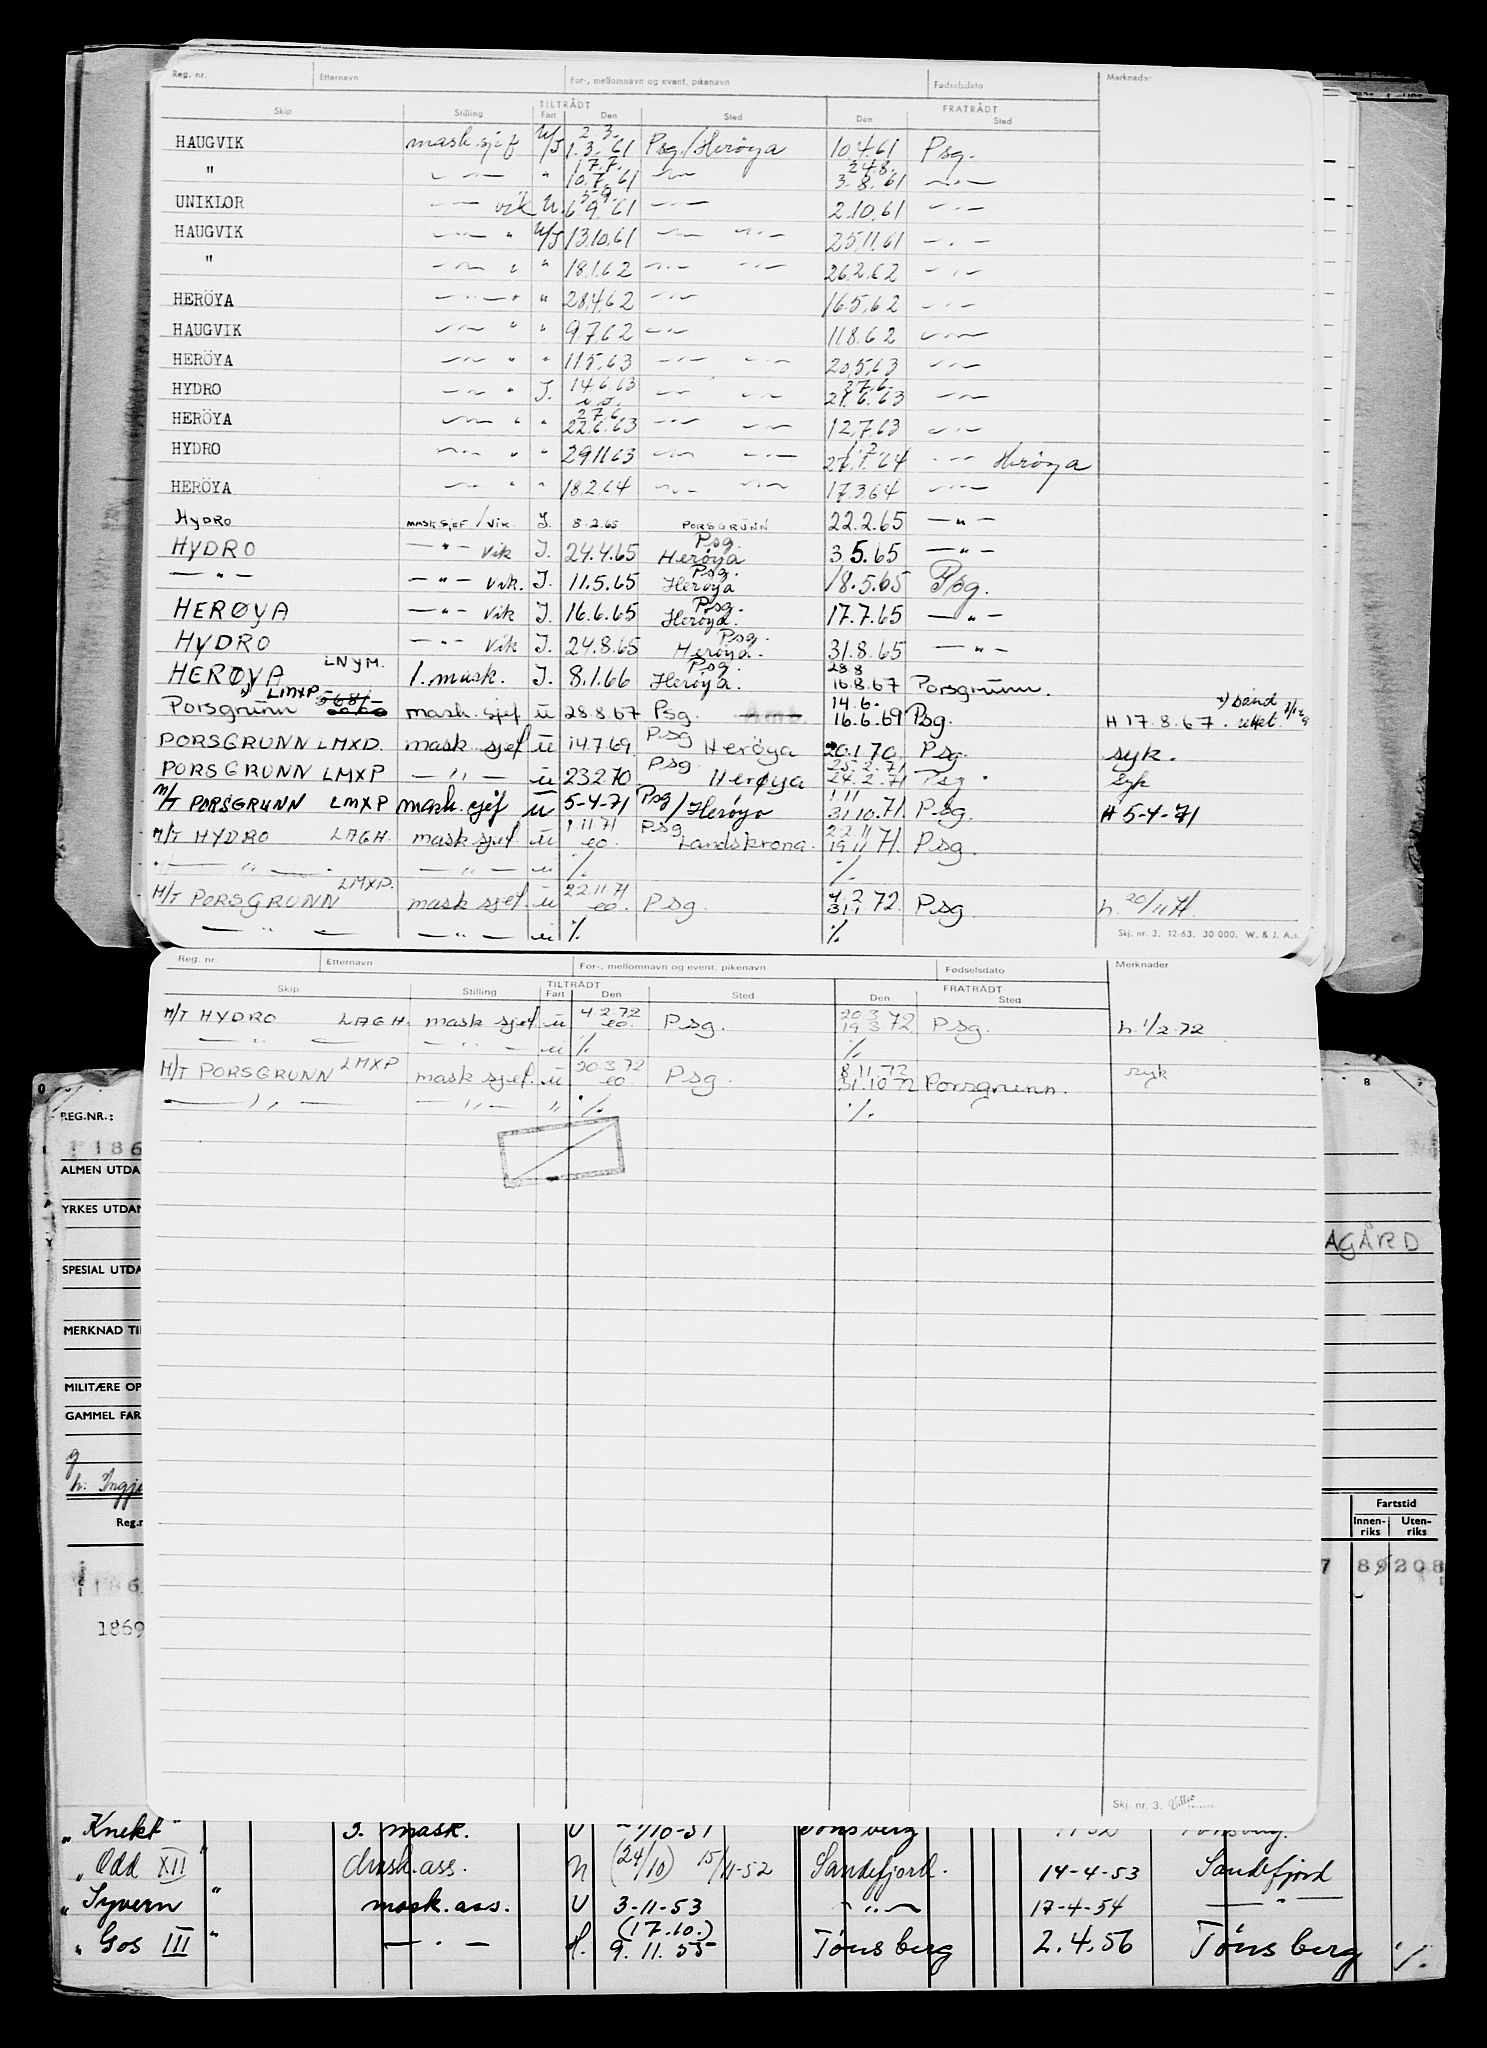 Reg. nr. Etternavn For-, mellomnavn og event. pikenavn Fødselsdato Merknader
TILTRÅDT FRATRÅDT
Skip Stilling Fart Den Sted Den Sted
HAUGVIK mask sjef U/I 2.3. 1.3.61 Psg/Herøya 10.4.61 Psg.
" — " — " 17.7. 10.7.61 — " — 24.8. 3.8.61 — " —
UNIKLOR — " — vik U. 5.9. 6.9.61 — " — 2.10.61 — " —
HAUGVIK — " — " U/I 13.10.61 — " — — " — 25.11.61 — " —
" — " — " " 18.1.62 — " — — " — 26.2.62 — " —
HERÖYA — " — " " 28.4.62 — " — 16.5.62 — " —
HAUGVIK — " — " " 9.7.62 — " — 11.8.62 — " —
HERÖYA — " — " " 11.5.63 — " — — " — 20.5.63 — " —
HYDRO — " — " I. 14.6.63 — " — — " — 27.6. 21.6.63 — " —
HERÖYA — " — " " 27.6. 22.6.63 — " — — " — 12.7.63 — " —
HYDRO — " — " " 29.11.63 — " — — " — 64 — " — Herøya
HERÖYA — " — " " 18.2.64 — " — — " — 17.3.64 — " —
HYDRO MASK SJEF / VIK. I. 8.2.65 PORSGRUNN 22.2.65 — " —
HYDRO — " — vik I. 24.4.65 Psg. Herøya 3.5.65 — " —
— " — — " — vik. I. 11.5.65 Psg. Herøya 18.5.65 Psg.
HERØYA — " — vik I. 16.6.65 Psg. Herøya. 17.7.65 — " —
HYDRO — " — vik I. 24.8.65 Psg. Herøya. 31.8.65 — " —
HERØYA LNYM. 1. mask. I. 8.1.66 Psg. Herøya. 28.8 16.8.67 Porsgrunn.
Porsgrunn LMXP mask. sjef u 28.8.67 Psg. Amt. 14.6. 16.6.69 Psg. H 17.8.67.
PORSGRUNN LMXD. mask sjef u 14.7.69. Psg Herøya 20.1.70 Psg. syk.
PORSGRUNN LMXP — " — u 23270 Psg. Herøya 25.2.71 24.2.71 Psg. Syk
M/T PORSGRUNN LMXP mask. sjef u 5-4-71 Psg/Herøya 1.11 31.10.71. Psg. H 5-4-71
M/T HYDRO LAGH. mask sjef. u 1.11.71 eo. Psg Landskrona. 22.11 19.11.71. Psg.
— " — — " — u %. %.
M/T PORSGRUNN LMXP. mask sjef. u 22.11.71 eo. Psg. 4.2 31.1.72. Psg. h. 20/11 71.
— " — — " — u %. %.
Skj. nr. 3. 12-63. 30 000. W. & J. A.s.
Reg. nr. Etternavn For-, mellomnavn og event. pikenavn Fødselsdato Merknader
TILTRÅDT FRATRÅDT
Skip Stilling Fart Den Sted Den Sted
M/T HYDRO LAGH. mask sjef. u 4.2.72 eo. Psg. 20.3 19.3.72 Psg. h. 1/2.72
— " — — " — u %. %.
M/T PORSGRUNN LMXP mask sjef. u 20.3.72 eo. Psg. 8.11.72 31.10.72 Porsgrunn. syk
— " — — " — " %. %.
8
REG.NR.:
186
ALMEN UTDA
YRKES UTDAN
AGÅRD
SPESIAL UTDA
MERKNAD TI
MILITÆRE OP
GAMMEL FAR
g
h: Ingje
Fartstid
Reg.n Innen-riks Uten-riks
186 7 89 208
1869
Skj. nr. 3.
" Knekt " 3. mask. U /10-51 Tönsberg Tönsberg.
" Odd XII " mask. ass. N (24/10) 15/11-52 Sandefjord. 14-4-53 Sandefjord
" Syvern " mask. ass. U 3-11-53 — " — 17-4-54 — " —
" Gos III " — " — H. (17.10.) 9.11.55 Tönsberg 2.4.56 Tönsberg %.